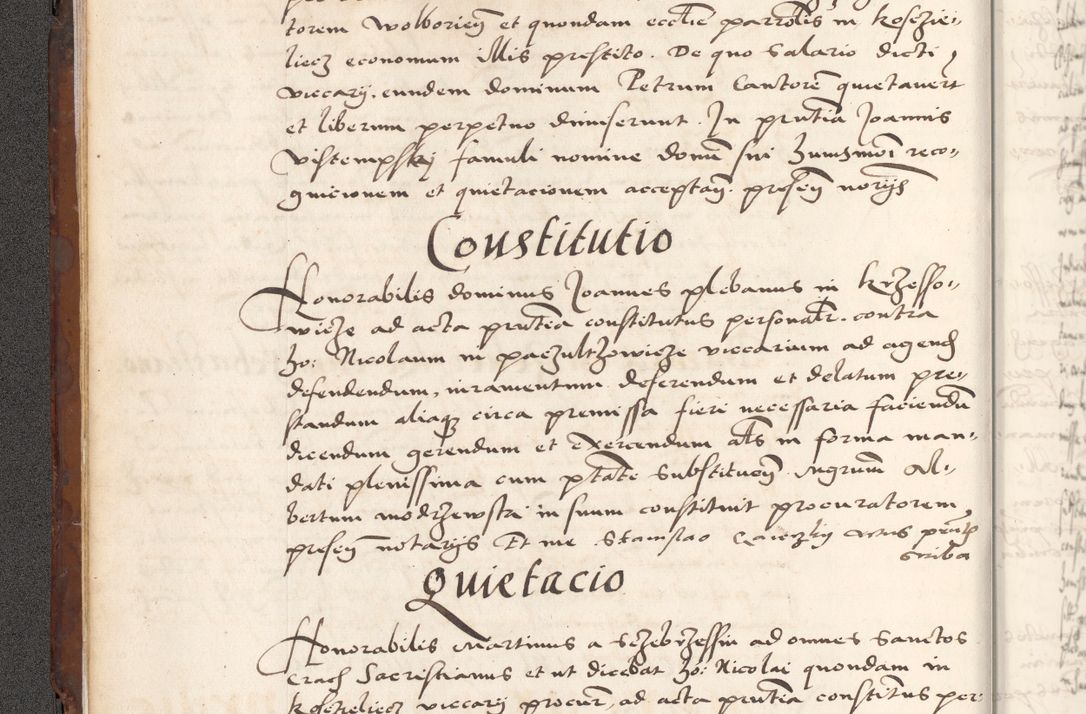 torem Wolborieñ et quondam ecclie parrolis in Kosczie-
liecz economum illis prestito. De quo salario dicti
viccarij eundem dominum Petrum Cantorē quietaverūt
et liberum perpetuo dimiserunt. In pñtia Joannis
famuli nomine domī sui reco-
gnicionem et quietacionem acceptañ. preseñ norijs
Constitutio
Honorabilis dominus Joannes plebanus in Krzesso-
wicze ad acta pñtia constitutus personalr. contra
ho: Nicolaum in viccarium ad agend
defendendum, iuramentum deferendum et delatum pre-
standum aliaq circa premissa fieri necessaria faciendū
dicendum gerendum et exercendum als in forma man-
dati plenissima cum ptate substituen̄ Al-
bertum modrzewski in suum constituit procuratorem
preseñ notarijs Et me Stanislao
scriba
Quietacio
Honorabilis Martinus a Sczebrzessin ad omnes Sanctos
Crach Sacristianus et ut dicebat ho: Nicolai quondam in
viccarij procur, ad acta pñtia constitus per-